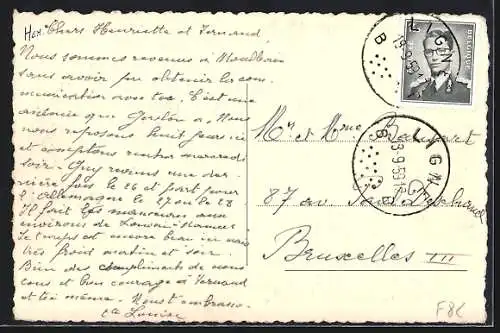 Mes Chers Henriette et Fernand
Nous sommes revenus à
sans avoir pu obtenir la com
munication avec toi. C'est une
que Nous
nous reposons huit jours ici
et comptons rentrer mercredi
soir. Guy viendra une der
nière fois le 26 et part pour
l'Allemagne le 27 ou 28
Il fait les manoeuvres aux
environs de
Le temps est encore beau mais
très froid matin et soir.
Bien des compliments de nous
tous et bon courage à Fernand
et toi même. Nous t'embrassons
Louise
BELGIQUE
LIGNE
B
-9-59
LIGNE
B
-9-59
B
Mr et Mme
87 av Paul Deschanel
Bruxelles III
F8C